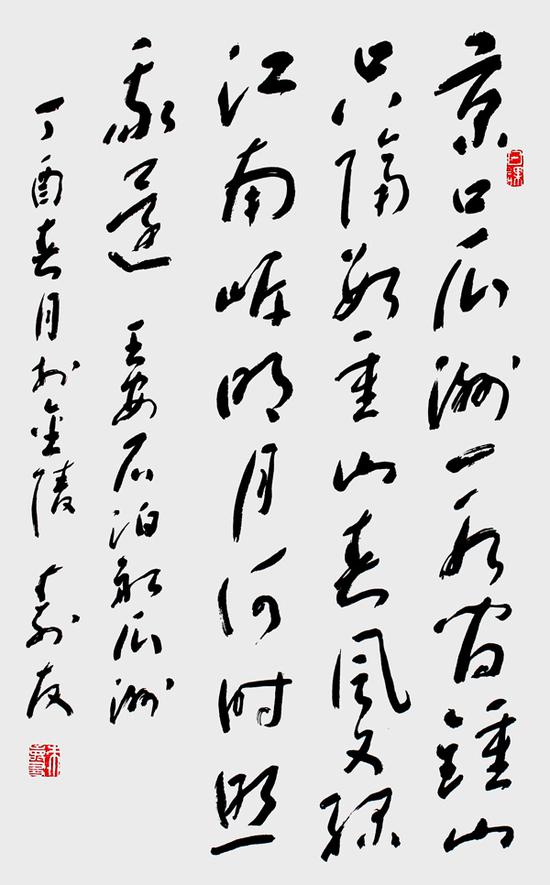 京口瓜洲一水間鍾山
只隔數重山春風又綠
江南岸明月何时照
我還 王安石泊船瓜洲
丁酉春月於金陵 寿友